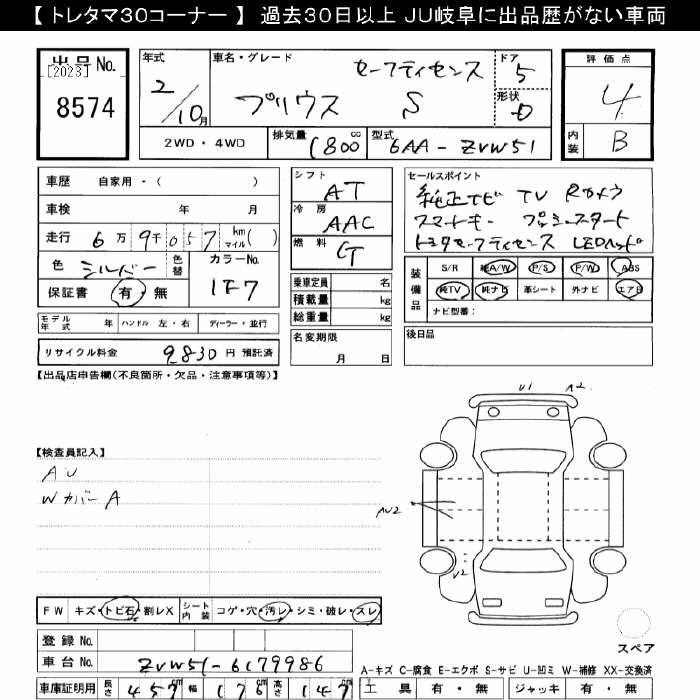 【 トレタマ30コーナー 】 過去30日以上 JU岐阜に出品歴がない車両
出品No.
[2023]
8574
年式
2/10月
車名・グレード
セーフティセンス
プリウス S
ドア
5
形状
D
評価点
4
内装
B
2WD・4WD
排気量
1800cc
型式
6AA-ZVW51
車歴 自家用・( )
車検 年 月
走行 6万9千057 km マイル( )
色 シルバー 色替
カラーNo.
1F7
保証書 有・無
シフト
AT
冷房
AAC
燃料
G
セールスポイント
純正ナビ TV Rカメラ
スマートキー プッシュスタート
トヨタセーフティセンス LEDヘッド
装備品
S/R 純A/W P/S P/W ABS
純TV 純ナビ 革シート 外ナビ エアB
ナビ型番:
乗車定員 名
積載量 kg
総重量 kg
モデル年式 年 ハンドル 左・右 ディーラー・並行
名変期限
月 日
後日品
リサイクル料金 9830円 預託済
【出品店申告欄(不良箇所・欠品・注意事項等)】
U1 A2
【検査員記入】
AU
WカバーA
AU2
U2
FW キズ・トビ石・割レX シート内装 コゲ・穴・汚レ・シミ・破レ・スレ
登録No.
車台No. ZVW51-6179986
スペア
A-キズ C-腐食 E-エクボ S-サビ U-凹ミ W-補修 XX-交換済
車庫証明用 長さ 457cm 幅 176cm 高さ 147cm
工具 有・無 ジャッキ 有・無